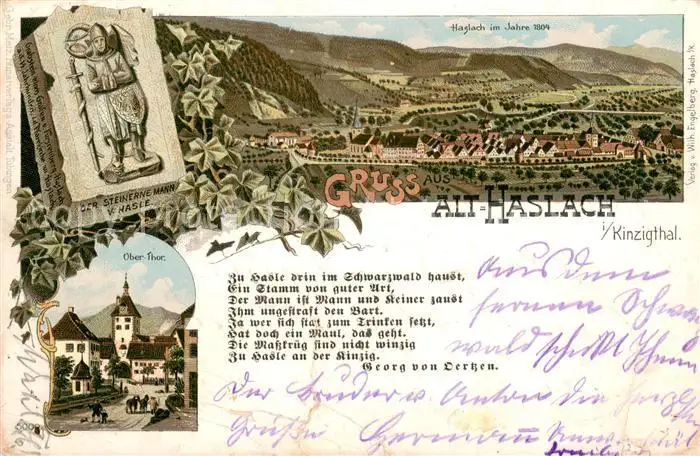 Haslach im Jahre 1804
DER STEINERNE MANN
V. HASLE.
GRUSS AUS
ALT-HASLACH
i/Kinzigthal.
Verlag v. Wilh. Engelberg, Haslach i/K.
Ober-Thor.
Zu Hasle drin im Schwarzwald haust,
Ein Stamm von guter Art,
Der Mann ist Mann und Keiner zaust
Ihm ungestraft den Bart.
Ja wer sich stat zum Trinken setzt,
Hat doch ein Maul, das geht.
Die Maßkrüg sind nicht winzig
Zu Hasle an der Kinzig.
Georg von Oertzen.
Aus dem
fernen Schwarz
wald schickt Ihnen
Der Bruder v. Anton die herzl
Grüße Hermann
5009